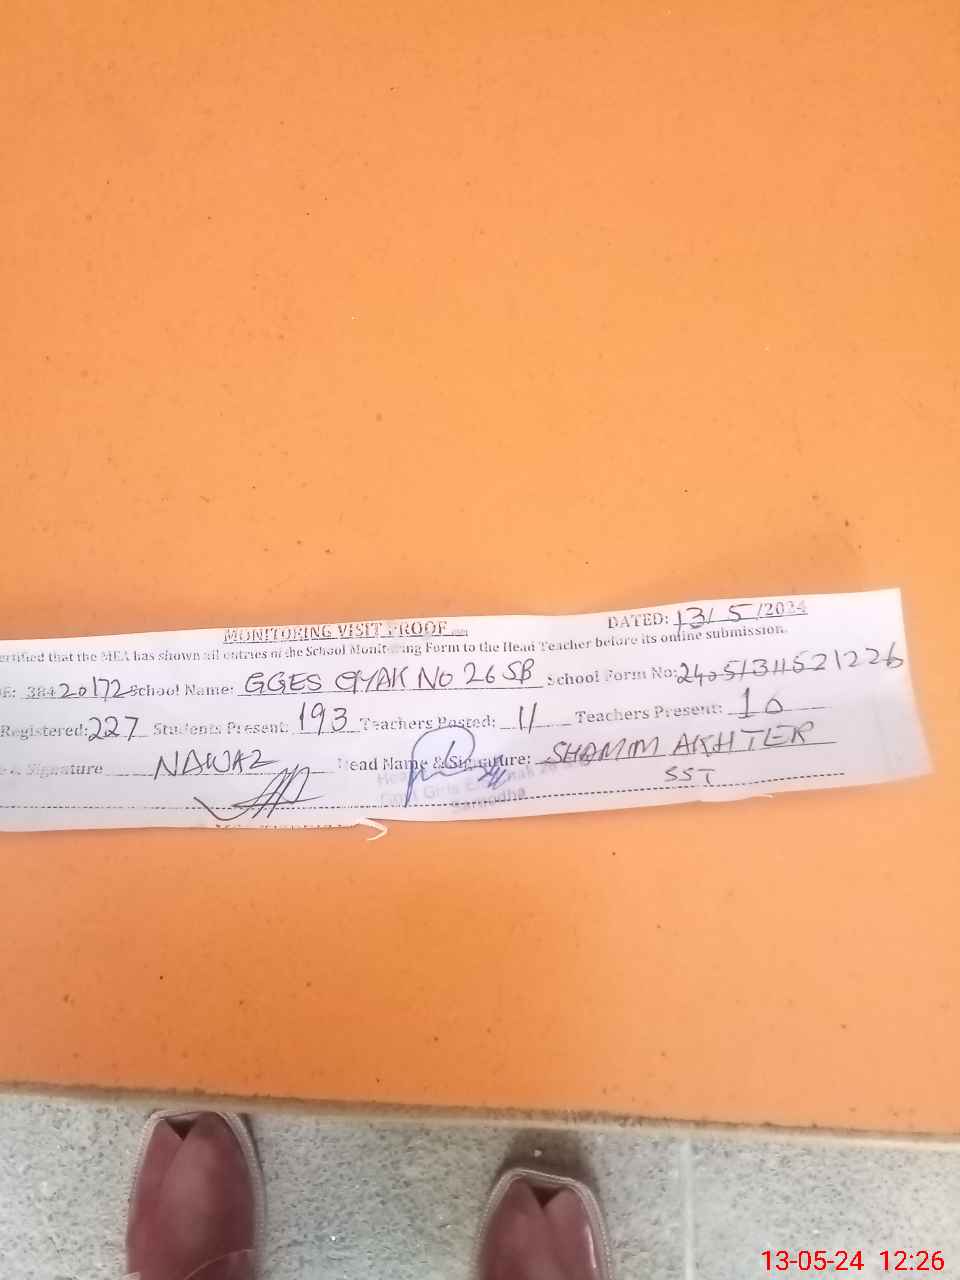 MONITORING VISIT PROOF
DATED: 13/5/2024
ertified that the MEA has shown all entries of the School Monitoring Form to the Head Teacher before its online submission.
E: 38420172 School Name: GGES CHAK NO 26 SB School Form No: 2405131521226
Registered: 227 Students Present: 193 Teachers Posted: 11 Teachers Present: 10
& Signature NAWAZ Head Name & Signature: SHAMIM AKHTER
SST
Girls
Sargodha
13-05-24 12:26